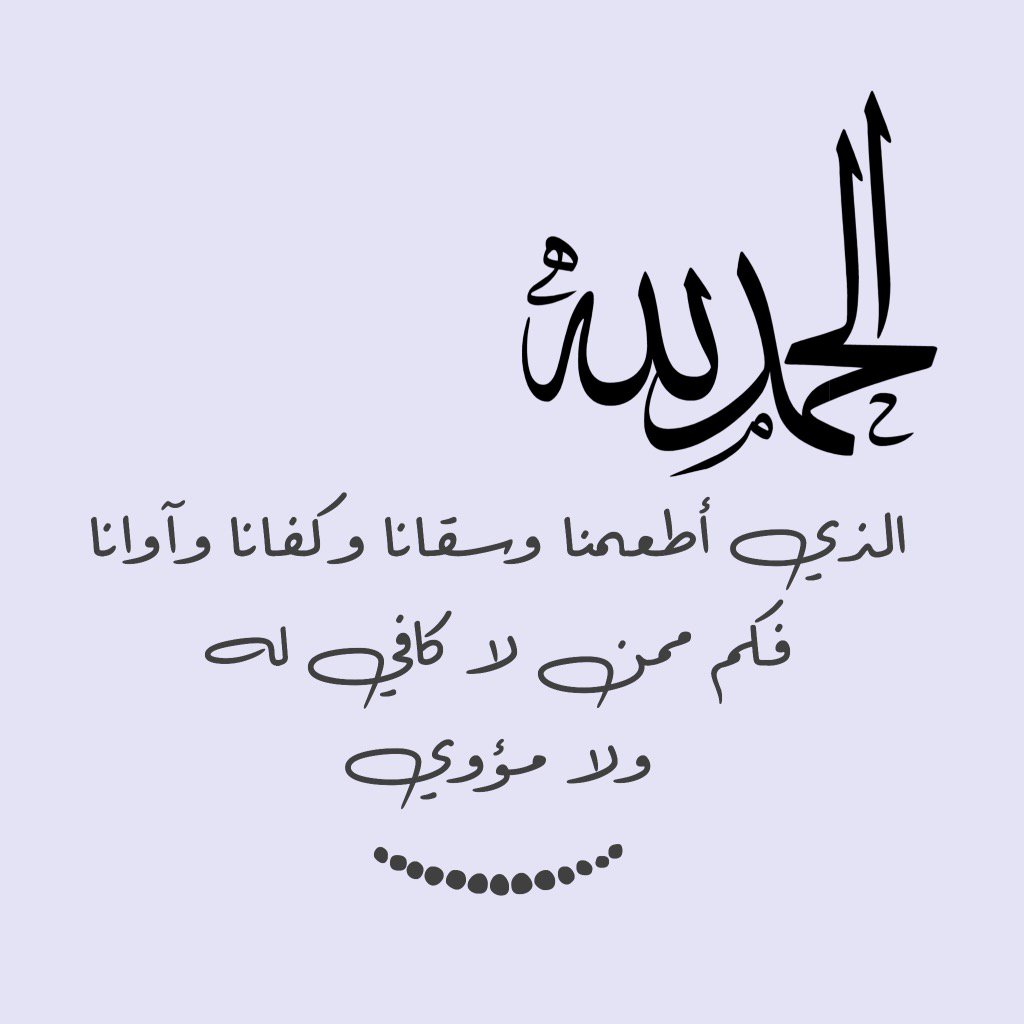 الحمد لله
الذي أطعمنا وسقانا وكفانا وآوانا
فكم ممن لا كافي له
ولا مؤوي